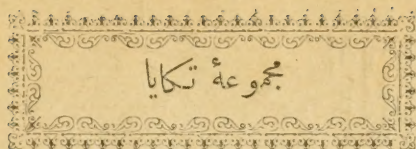 مجموعهٔ تكايا